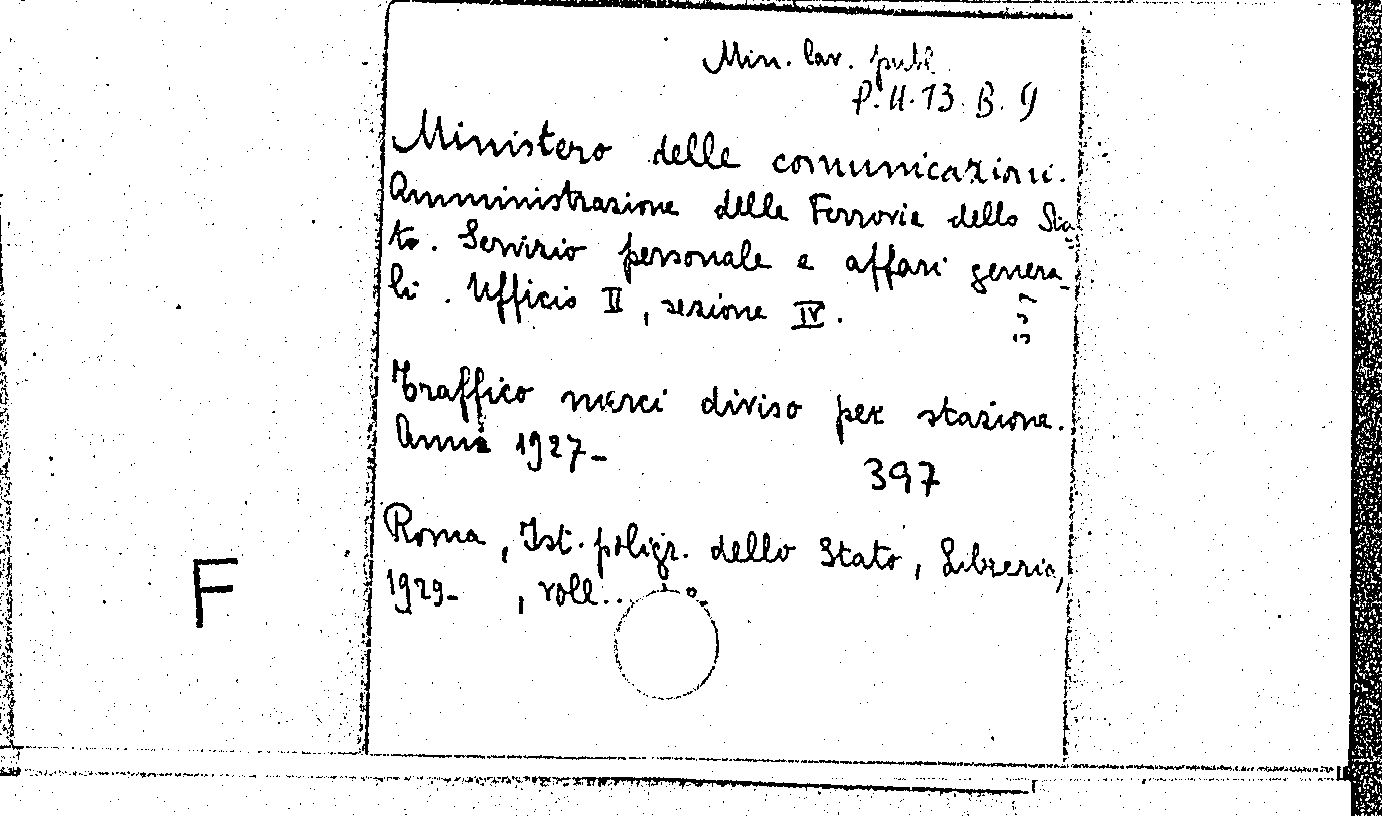 Min. lav. publ
P. II. 13. B. 9
Ministero delle comunicazioni.
Amministrazione delle Ferrovie dello Sta
to. Servizio personale e affari genera-
li. Ufficio II, sezione IV.
Traffico merci diviso per stazione.
Anni 1927-
397
Roma, Ist. poligr. dello Stato, Libreria,
1929- , voll...
F